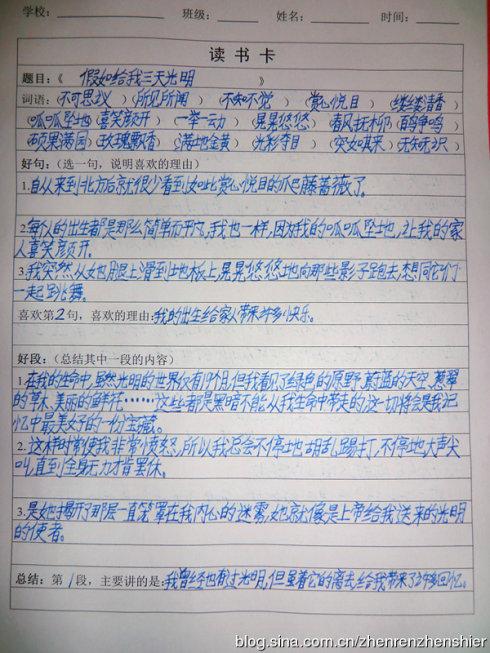 学校： 班级： 姓名： 时间：
读 书 卡
题目：《 假如给我三天光明 》
词语：（不可思议）（所见所闻）（不知不觉）（赏心悦目）（缕缕清香）
（呱呱坠地）（喜笑颜开）（一举一动）（晃晃悠悠）（春风抚柳）（百鸟争鸣）
（硕果满园）（玫瑰飘香）（满地金黄）（光彩夺目）（突如其来）（无知无识）
好句：（选一句，说明喜欢的理由）
1.自从来到北方后就很少看到如此赏心悦目的爬藤蔷薇了。
2.每个人的出生者都是那么简单而平凡，我也一样，因为我的呱呱坠地，让我的家
人喜笑颜开。
3.我突然从她腿上滑到地板上，晃晃悠悠地向那些影子跑去，想同它们
一起跳舞。
喜欢第2句，喜欢的理由：我的出生给家人带来许多快乐。
好段：（总结其中一段的内容）
1.在我的生命中，虽然光明的世界仅有19个月，但我看见了绿色的原野，蔚蓝的天空、葱翠
的草木、美丽的鲜花……这些都是黑暗不能从我生命中带走的，这一切将会是我记
忆中最美好的一份宝藏。
2.这样时常使我非常愤怒，所以我总会不停地胡乱踢打，不停地大声尖
叫，直到全身无力才肯罢休。
3.是她揭开了那层一直笼罩在我内心的迷雾，她就像是上帝给我送来的光明
的使者。
总结：第1段，主要讲的是：我曾经也有过光明，但显着它的离去，给我带来了许多回忆。
blog.sina.com.cn/zhenrenzhenshier